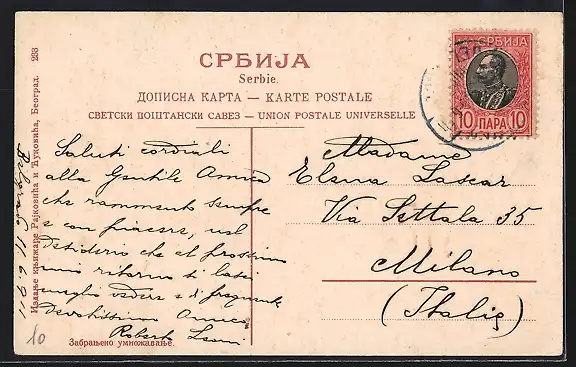 СРБИЈА
Serbie.
ДОПИСНА КАРТА — KARTE POSTALE
СВЕТСКИ ПОШТАНСКИ САВЕЗ — UNION POSTALE UNIVERSELLE
СРБИЈА
10 ПАРА 10
Saluti cordiali
alla Gentile Amica
che rammento sempre
e con piacere, nel
desiderio che al prossimo
mio ritorno di
meglio vedere e di
Devotissimo Amico
Roberto
Madame
Elena Lascar
Via Settala 35
Milano
(Italie)
Забрањено умножавање.
Издање књижаре Рајковића и Ћуковића, Београд. 293
Belgrado 11.6.911
10